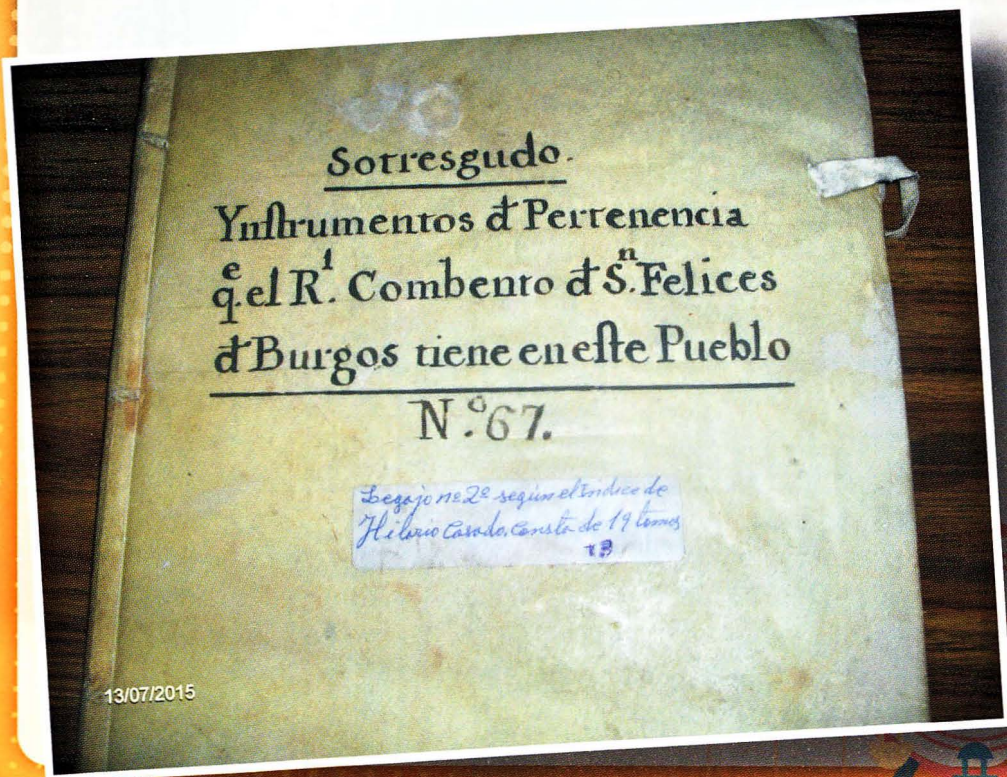 Sotresgudo.
Ynstrumentos d Pertenencia
q.e el R.l Combento d S.n Felices
d Burgos tiene en este Pueblo
N.o 67.
Legajo nº 2º según el Indice de
Hilario Casado. Consta de 19 tomos
13/07/2015